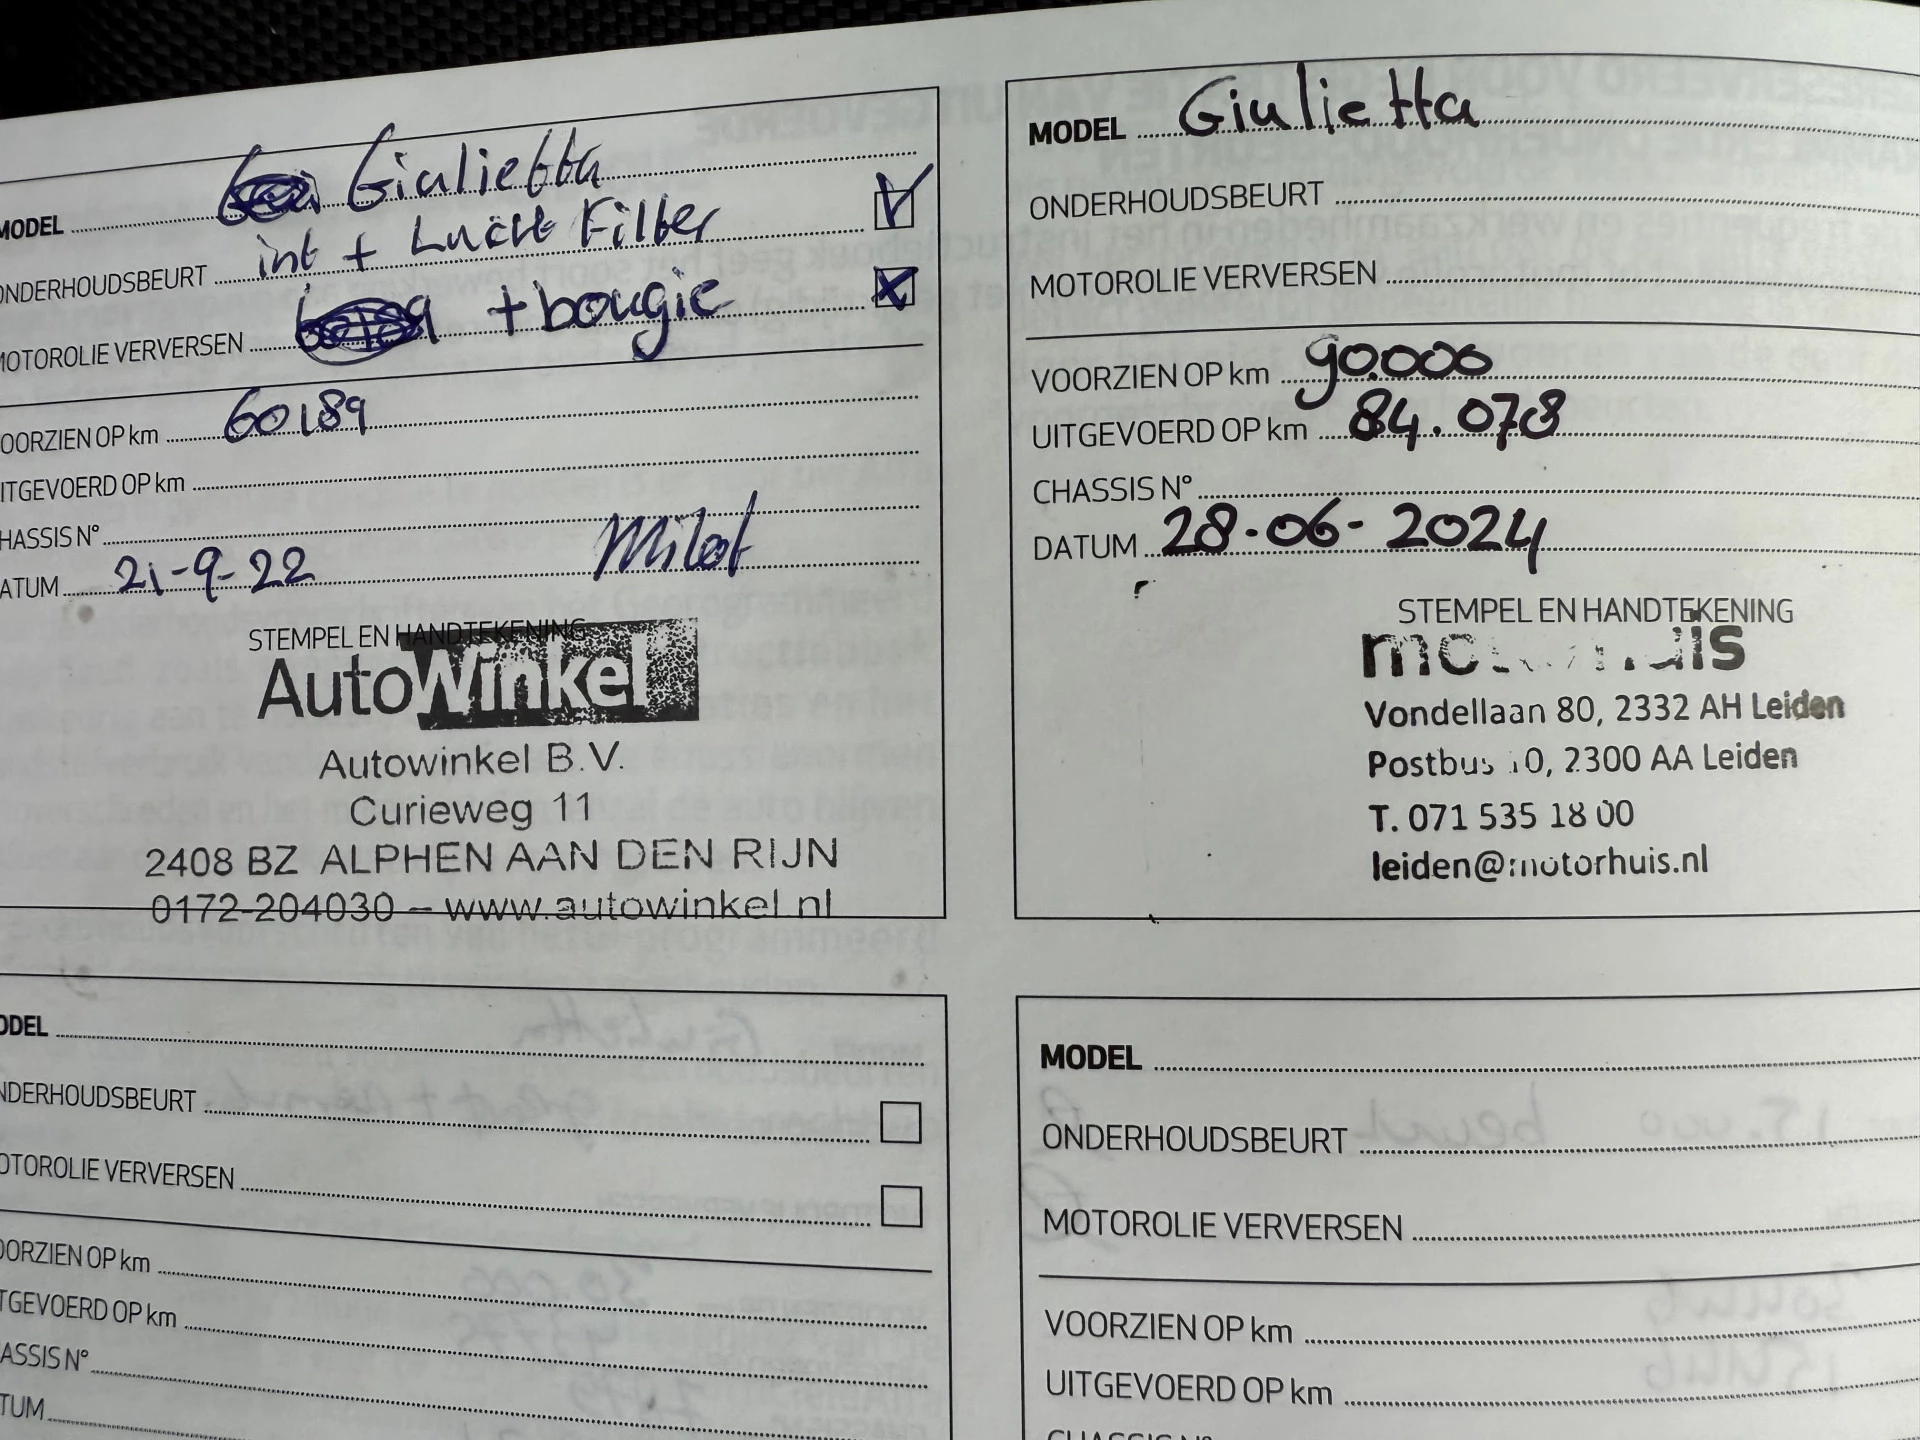 MODEL Giulietta
ONDERHOUDSBEURT int + Lucht Filter
MOTOROLIE VERVERSEN + bougie
VOORZIEN OP km 60189
UITGEVOERD OP km
CHASSIS N°
DATUM 21-9-22
STEMPEL EN HANDTEKENING
AutoWinkel
Autowinkel B.V.
Curieweg 11
2408 BZ ALPHEN AAN DEN RIJN
0172-204030 – www.autowinkel.nl
MODEL Giulietta
ONDERHOUDSBEURT
MOTOROLIE VERVERSEN
VOORZIEN OP km 90.000
UITGEVOERD OP km 84.078
CHASSIS N°
DATUM 28-06-2024
STEMPEL EN HANDTEKENING
motorhuis
Vondellaan 80, 2332 AH Leiden
Postbus 10, 2300 AA Leiden
T. 071 535 18 00
leiden@motorhuis.nl
MODEL
ONDERHOUDSBEURT
MOTOROLIE VERVERSEN
VOORZIEN OP km
UITGEVOERD OP km
CHASSIS N°
DATUM
MODEL
ONDERHOUDSBEURT
MOTOROLIE VERVERSEN
VOORZIEN OP km
UITGEVOERD OP km
CHASSIS N°